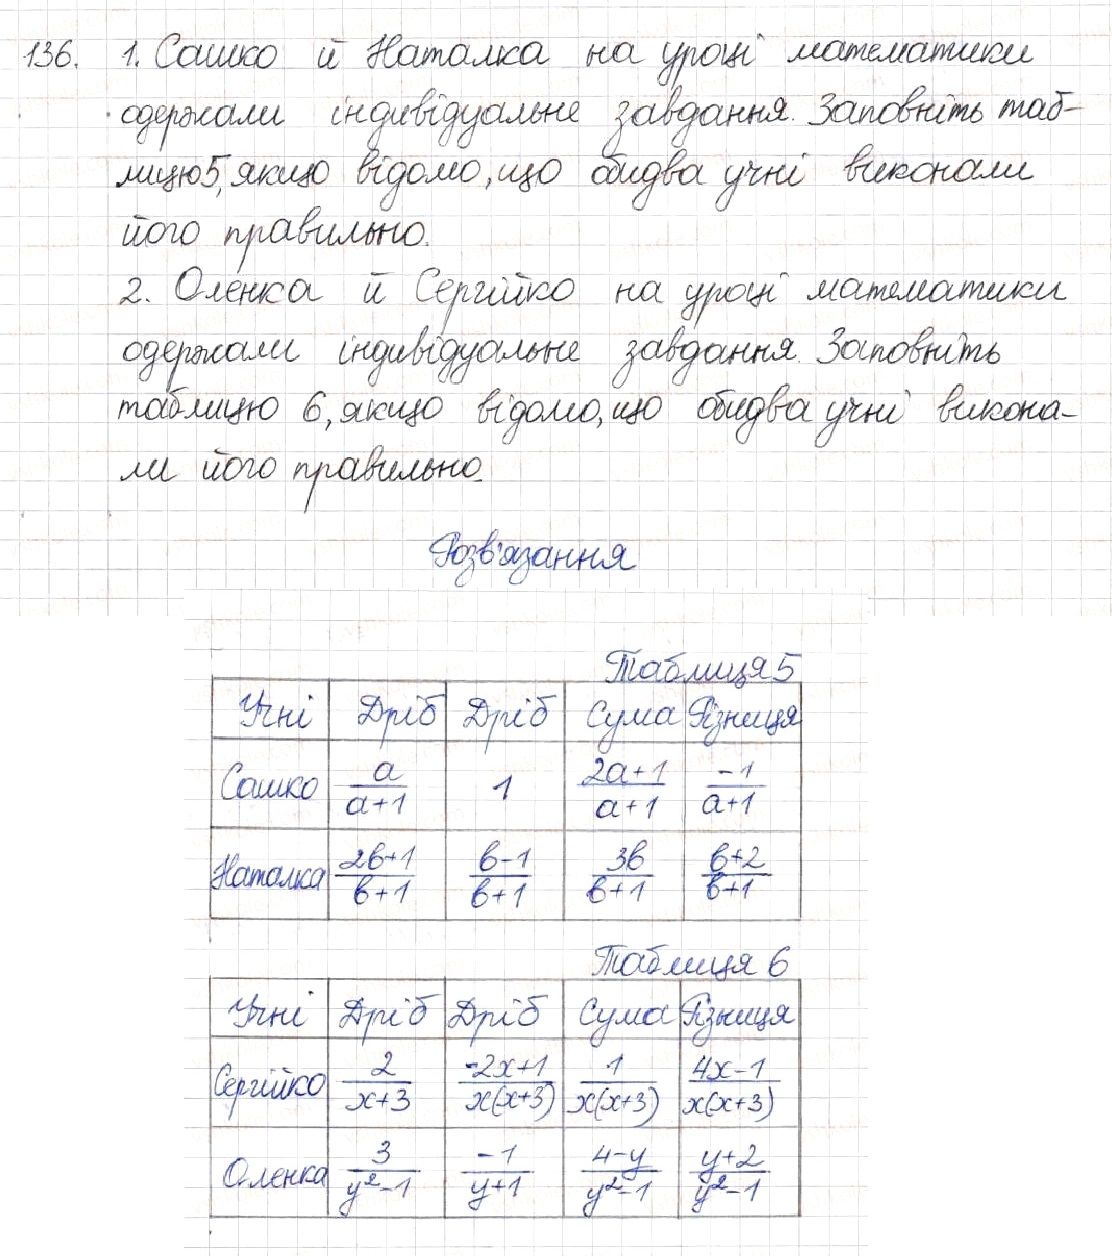 136. 1. Сашко й Наталка на уроці математики
одержали індивідуальне завдання. Заповніть таб-
лицю 5, якщо відомо, що обидва учні виконали
його правильно.
2. Оленка й Сергійко на уроці математики
одержали індивідуальне завдання. Заповніть
таблицю 6, якщо відомо, що обидва учні викона-
ли його правильно.
Розв'язання
Таблиця 5
Учні Дріб Дріб Сума Різниця
Сашко a/(a+1) 1 (2a+1)/(a+1) -1/(a+1)
Наталка (2в+1)/(в+1) (в-1)/(в+1) 3в/(в+1) (в+2)/(в+1)
Таблиця 6
Учні Дріб Дріб Сума Різниця
Сергійко 2/(x+3) (-2x+1)/(x(x+3)) 1/(x(x+3)) (4x-1)/(x(x+3))
Оленка 3/(y²-1) -1/(y+1) (4-y)/(y²-1) (y+2)/(y²-1)